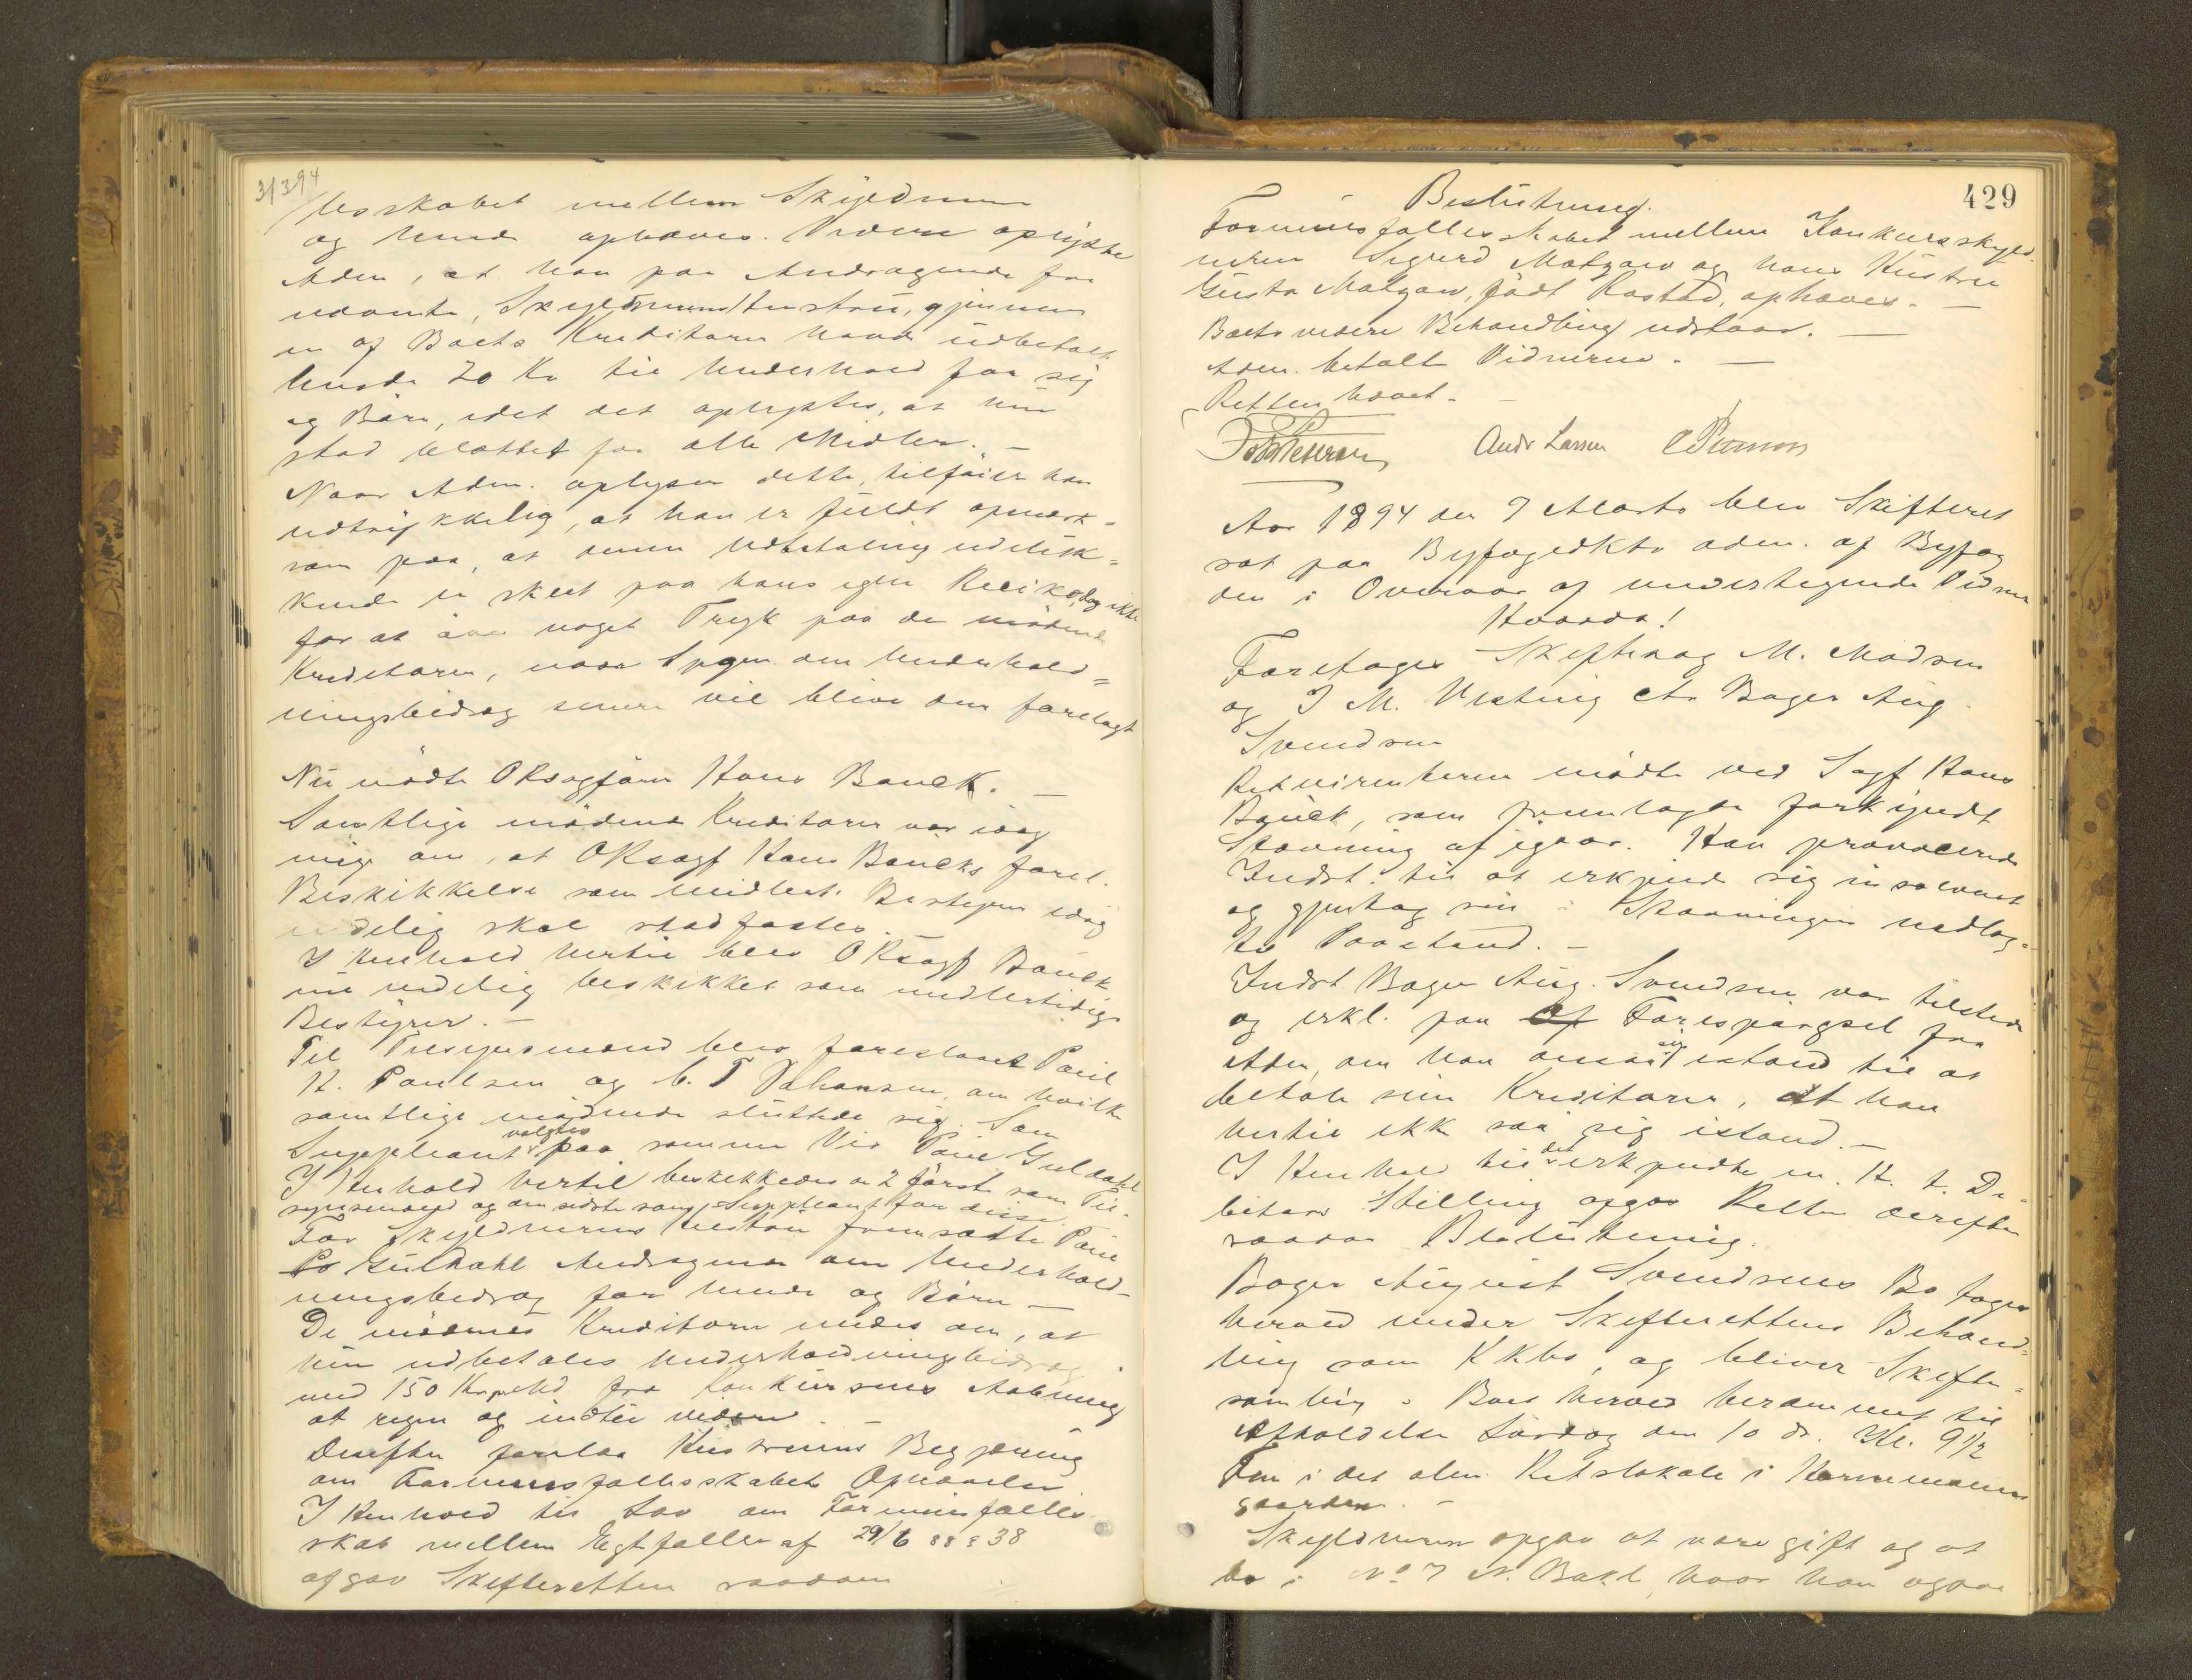 3/3 94
lesskabet mellem Skyldneren
og hende ophæves. Videre oplyste
Adm, at han paa Andragende fra
nævnte, Skyldnerens Hustru, gjennem
en af Boets Kreditorer havde udbetalt
hende 20 Kr til Underhold for sig
og Børn, idet det oplystes, at hun
stod blottet for alle Midler. —
Naar Adm. oplyser dette, tilføier han
udtrykkelig, at han er fuldt opmærk-
som paa, at denne Udbetaling udeluk-
kende er skeet paa hans egen Risiko, og ikke
for at øve noget Tryk paa de mødende
Kreditorer, naar Spgm. om Underhold-
ningsbidrag senere vil blive dem forelagt
Nu mødte ORsagfører Hans Bauck. —
Samtlige mødende Kreditorer var idag
enige om, at ORsagf Hans Baucks forel.
Beskikkelse som midlert. Bestyrer idag
endelig skal stadfæstes.
I Henhold hertil blev ORsagf Bauck
nu endelig beskikket som midlertidig
Bestyrer. —
Til Tilsynsmænd blev foreslaaet Paul
H. Paulsen og C. T Johansen, om hvilke
samtlige mødende sluttede sig. Som
Suppleant valgtes paa samme Vis Paul Guldahl
I Henhold hertil beskikkedes de 2 første som Til-
synsmænd og den sidste som Suppleant for disse.
For Skyldnerens Hustru fremsatte Paul
Guldahl Andragende om Underhold-
ningsbidrag for hende og Børn —
De mødende Kreditorer enedes om, at
hun udbetales Underholdningsbidrag
med 150 Kr pr Md fra Konkursens Aabning
at regne og indtil videre. —
Derefter forelaa Hustruens Begjæring
om Formuesfællesskabets Ophævelse
I Henhold til Lov om Formuesfælles-
skab mellem Ægtefæller af 29/6 88 § 38
afgav Skifteretten saadan
429
Beslutning.
Formuesfællesskabet mellem Konkursskyld-
neren Sigurd Matzow og hans Hustru
Gusta Matzow, født Rostad, ophæves. —
Boets videre Behandling udstaar. —
Adm. betalte Vidnerne. —
Retten hævet. —
Andr Larsen
Aar 1894 den 9 Marts blev Skifteret
sat paa Byfogedktr adm. af Byfog
den i Overvær af undertegnede Vidner
Hvorda!
Foretoges Skiftesag M. Madsen
og J M. Vesting ctr Bager Aug.
Svendsen
Rekvirenterne mødte ved Sagf Hans
Bauck, som fremlagde forkyndt
Stævning af igaar. Han provocerede
Indst. til at erkjende sig insolvent
og gjentog sin i Stævningen nedlag-
te Paastand. —
Indst. Bager Aug. Svendsen var tilstede
og erkl. paa Forespørgsel fra
Adm, om han ansaa sig istand til at
betale sine Kreditorer, at han
hertil ikke saa sig istand. —
I Henhold til det erkjendte m. H. t. De-
bitors Stilling afgav Retten derefter
saadan Beslutning.
Bager August Svendsens Bo tages
herved under Skifterettens Behand-
ling som Kkbo, og bliver Skifte-
samling i Boet herved berammet til
Afholdelse Lørdag den 10 ds. Kl. 9 1/2
Fm i det alm. Retslokale i Hornemans-
gaarden. —
Skyldneren opgav at være gift og at
bo i No 7 N. Bakl, hvor han ogsaa